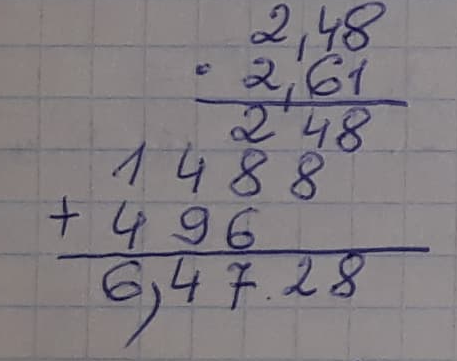 2,48
· 2,61
248
1488
+ 496
6,47.28